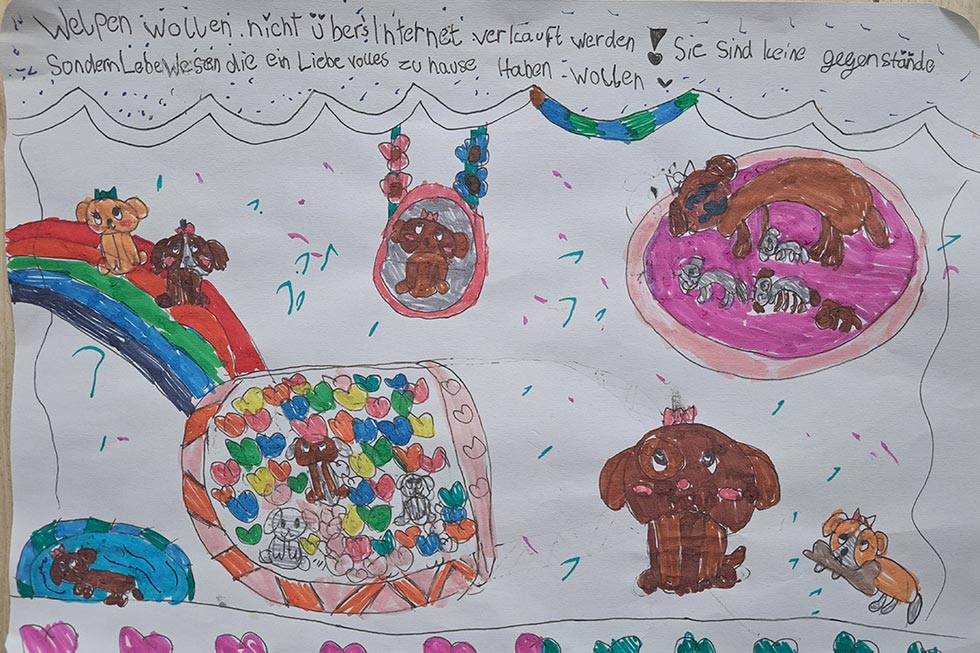 Welpen wollen nicht übers Internet verkauft werden ! Sie sind keine gegenstände
Sondern Lebewesen die ein Liebevolles zu hause Haben wollen !